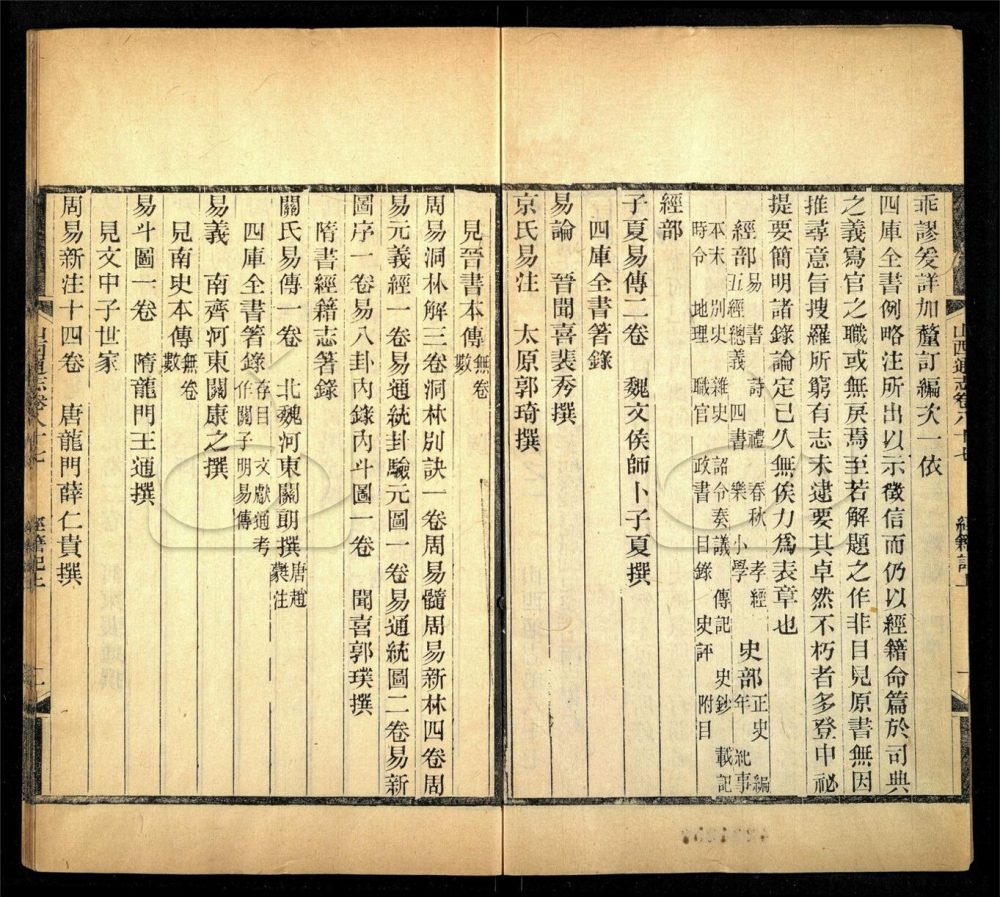 乖謬爰詳加釐訂編次一依
四庫全書例略注所出以示徵信而仍以經籍命篇於司典
之義寫官之職或無戾焉至若解題之作非目見原書無因
推尋意旨搜羅所窮有志未逮要其卓然不朽者多登中祕
提要簡明諸錄論定已久無俟力爲表章也
經部 易 書 詩 禮 春秋 孝經 五經總義 四書 樂 小學
史部 正史 編年 紀事本末 別史 雜史 詔令奏議 傳記 史鈔 載記
時令 地理 職官 政書 目錄 史評 附目
經部
子夏易傳二卷 魏文侯師卜子夏撰
四庫全書箸錄
易論 晉聞喜裴秀撰
京氏易注 太原郭琦撰
見晉書本傳無卷數
周易洞林解三卷洞林別訣一卷周易髓周易新林四卷周
易元義經一卷易通統卦驗元圖一卷易通統圖二卷易新
圖序一卷易八卦內錄內斗圖一卷 聞喜郭璞撰
隋書經籍志箸錄
關氏易傳一卷 北魏河東關朗撰唐趙蕤注
四庫全書箸錄存目 文獻通考作關子明易傳
易義 南齊河東關康之撰
見南史本傳無卷數
易斗圖一卷 隋龍門王通撰
見文中子世家
周易新注十四卷 唐龍門薛仁貴撰